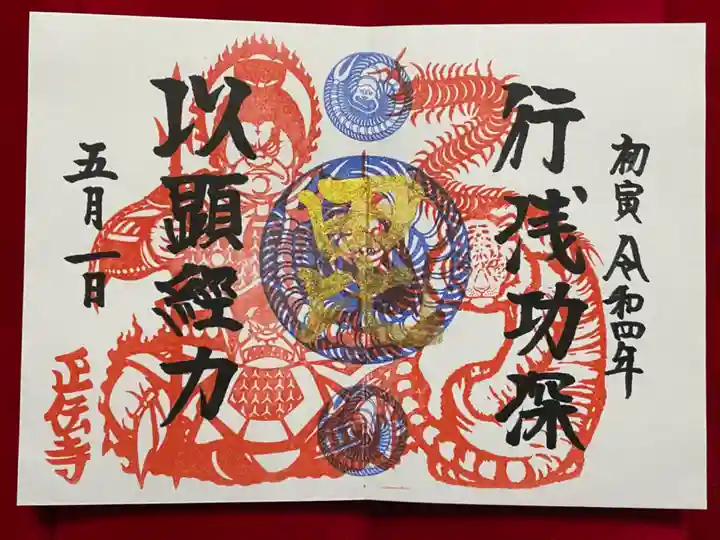 初寅 令和四年
行浅功深
以顕経力
五月一日
正伝寺